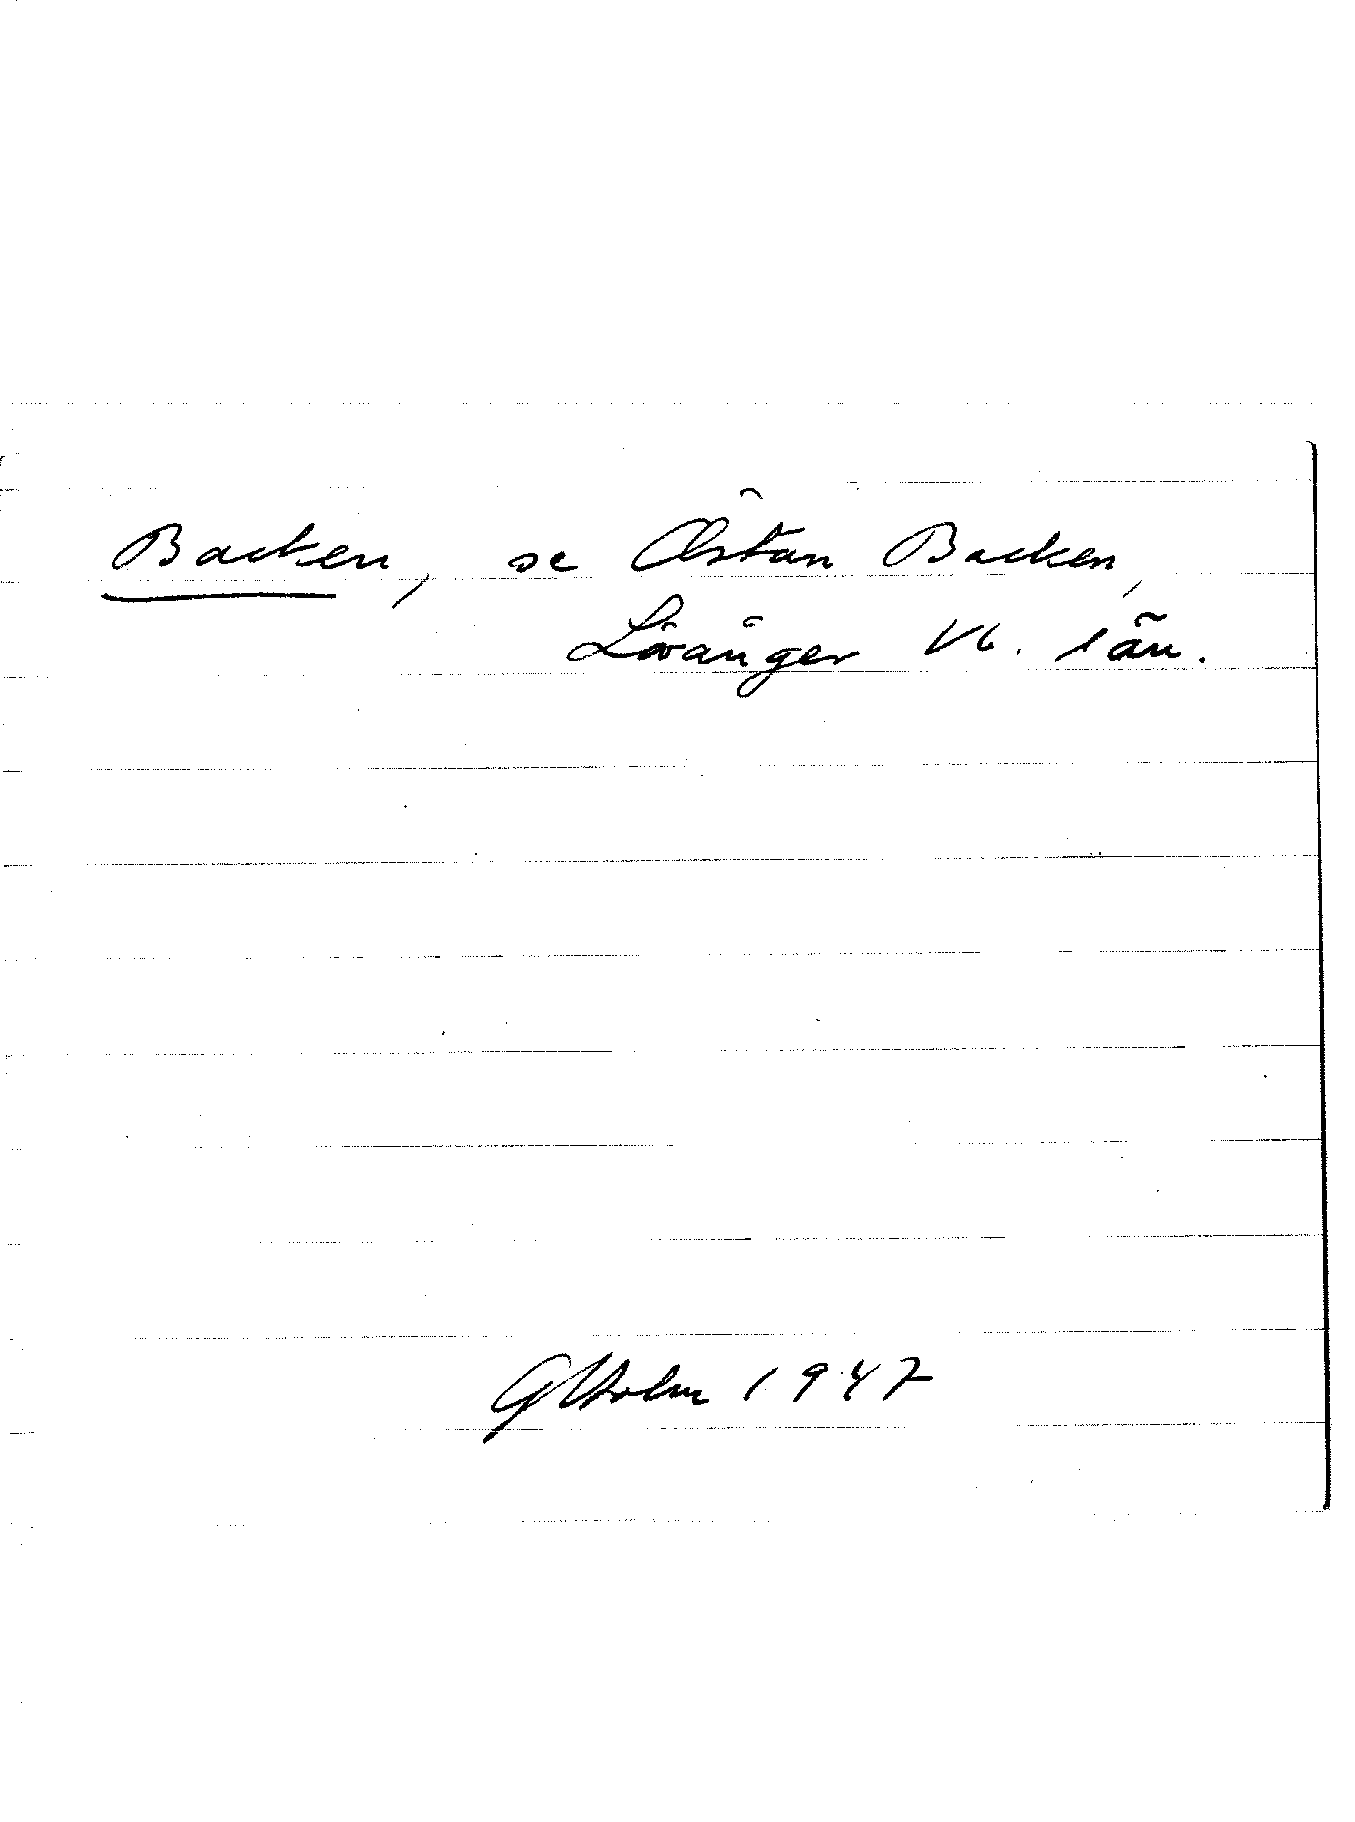 Backen, se Östan Backen,
Lövånger Vb. län.
G Holm 1947